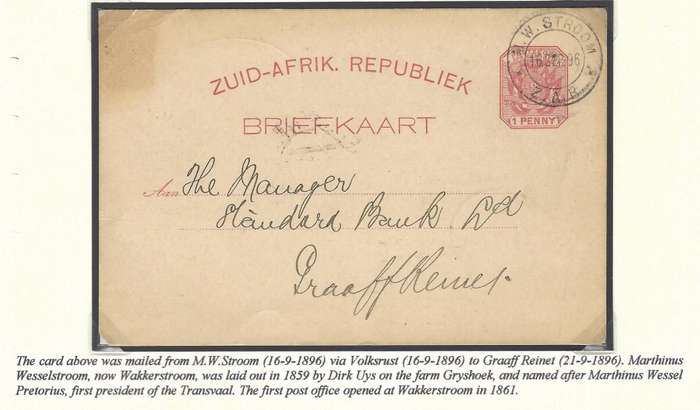 ZUID-AFRIK. REPUBLIEK
M.W. STROOM
Z.A.R.
1 PENNY
BRIEFKAART
Aan The Manager
Standard Bank Ld
Graaff Reinet
The card above was mailed from M.W.Stroom (16-9-1896) via Volksrust (16-9-1896) to Graaff Reinet (21-9-1896). Marthinus
Wesselstroom, now Wakkerstroom, was laid out in 1859 by Dirk Uys on the farm Gryshoek, and named after Marthinus Wessel
Pretorius, first president of the Transvaal. The first post office opened at Wakkerstroom in 1861.